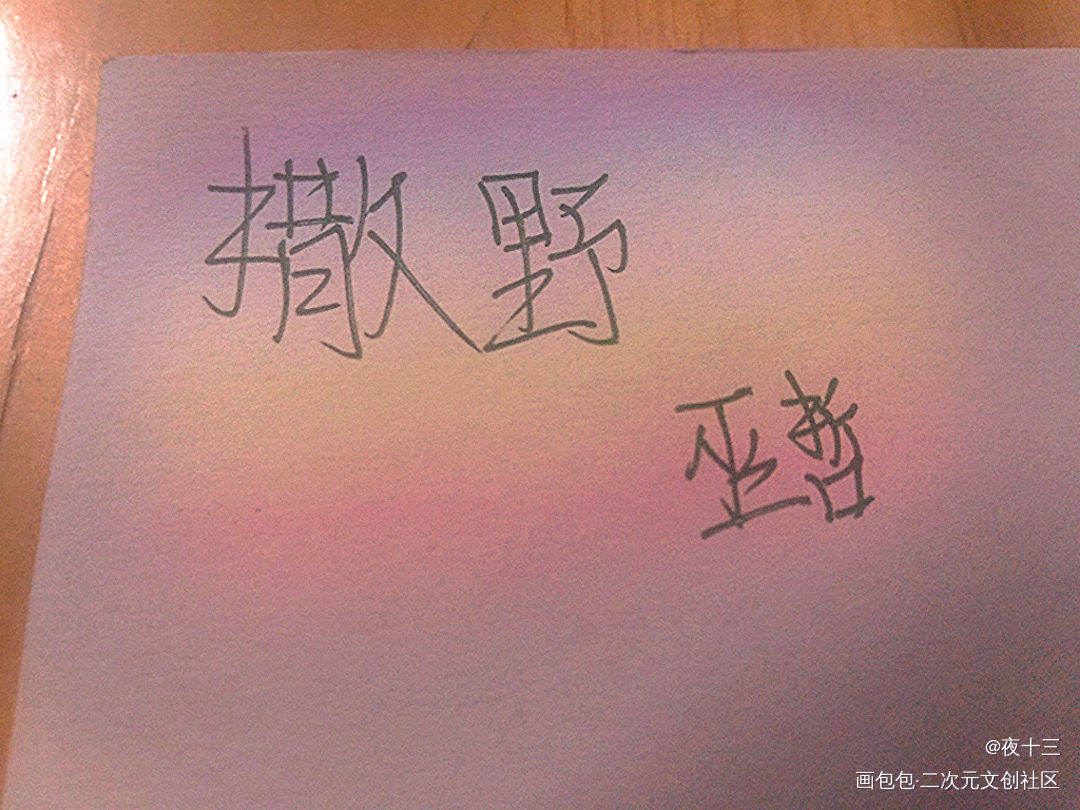 撒野
巫哲
@夜十三
画包包·二次元文创社区